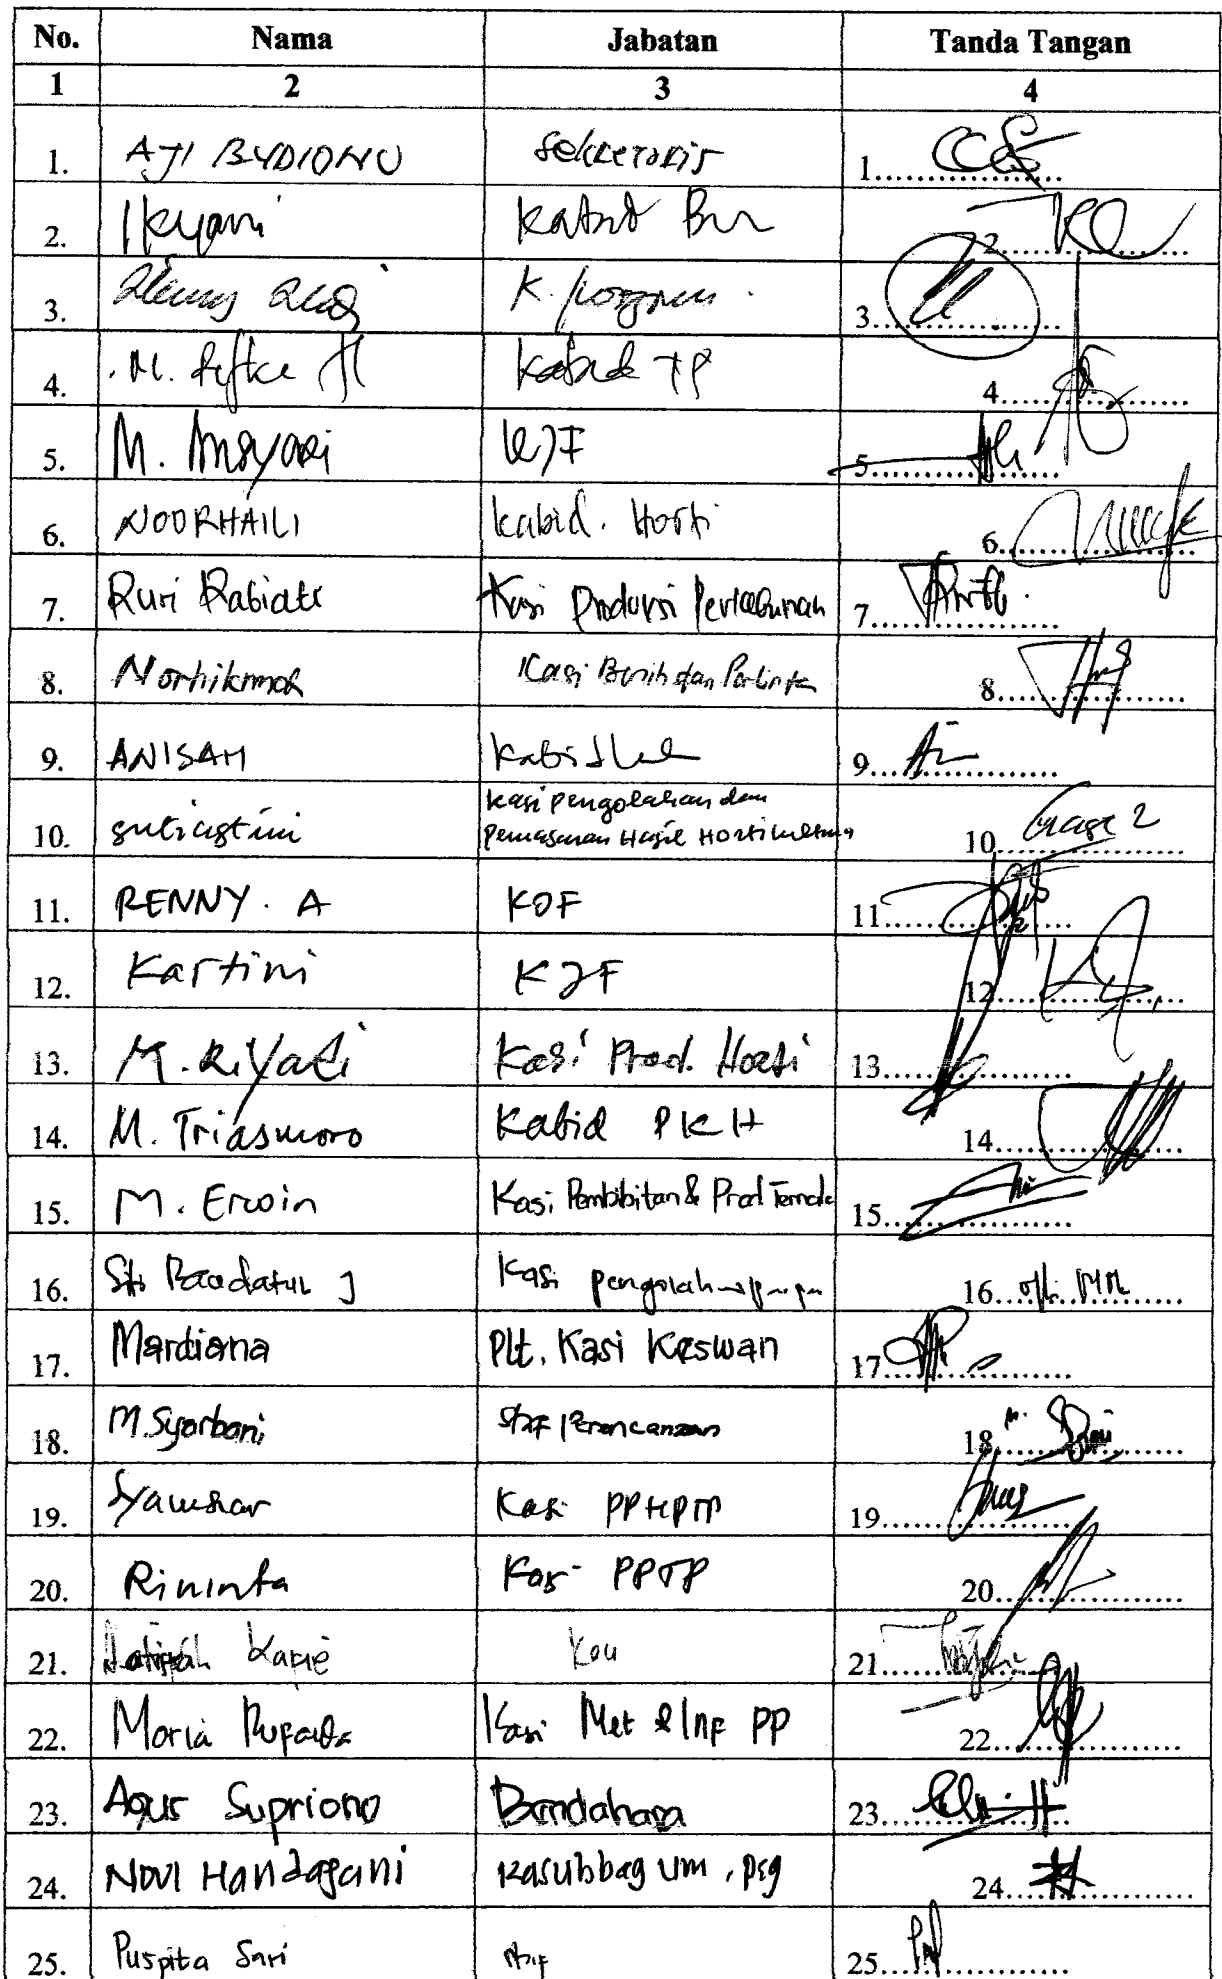 No. Nama Jabatan Tanda Tangan
1 2 3 4
1. AJI BUDIONO Sekretaris 1.
2. Ikyani Kabid Bun 2.
3. K. 3.
4. M. Kabid TP 4.
5. M. Ansyari KJF 5.
6. NOORHAILI Kabid. Horti 6.
7. Ruri Rabiati Kasi Produksi Perkebunan 7.
8. Norhikmah Kasi Benih dan Perlintan 8.
9. ANISAH Kabid 9.
10. Kasi pengolahan dan
Pemasaran Hasil Hortikultura 10.
11. RENNY. A KJF 11.
12. Kartini KJF 12.
13. M. Riyadi Kasi Prod. Horti 13.
14. M. Triasmoro Kabid PKH 14.
15. M. Erwin Kasi Pembibitan & Prod Ternak 15.
16. Siti Raodatul J Kasi 16.
17. Mardiana Plt. Kasi Keswan 17.
18. M. Syarbani Staf Perencanaan 18.
19. Kasi PPHPTP 19.
20. Rininta Kasi PPTP 20.
21. 21.
22. Maria Kasi Met & Inf PP 22.
23. Agus Supriono Bendahara 23.
24. Novi Handayani Kasubbag Um. Peg 24.
25. Puspita Sari Staf 25.